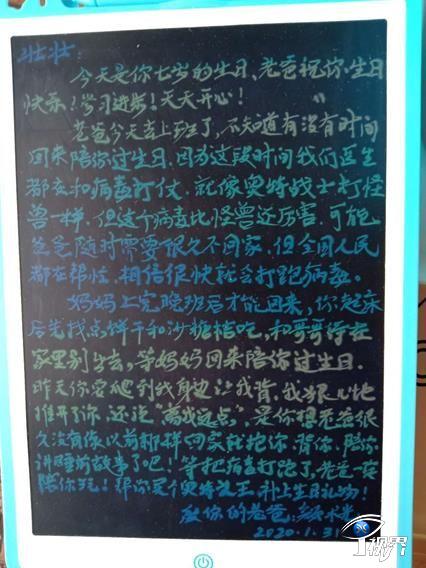 壮壮:
今天是你七岁的生日,老爸祝你生日
快乐!学习进步!天天开心!
老爸今天去上班了,不知道有没有时间
回来陪你过生日,因为这段时间我们医生
都在和病毒打仗,就像奥特战士打怪
兽一样,但这个病毒比怪兽还厉害,可能
爸爸随时需要很久不回家,但全国人民
都在帮忙,相信很快就会打跑病毒。
妈妈上完晚班后才能回来,你起床
后先找点饼干和沙糖桔吃,和哥哥待在
家里别出去,等妈妈回来陪你过生日.
昨天你要爬到我身边让我背,我狠心地
推开了你,还说“离我远点”,是你想老爸很
久没有像以前那样一回家就抱你、背你、陪你
讲睡前故事了吧!等把病毒打跑了,老爸一定
陪你玩!帮你买个奥特之王,补上生日礼物!
爱你的老爸:
2020.1.31
视界